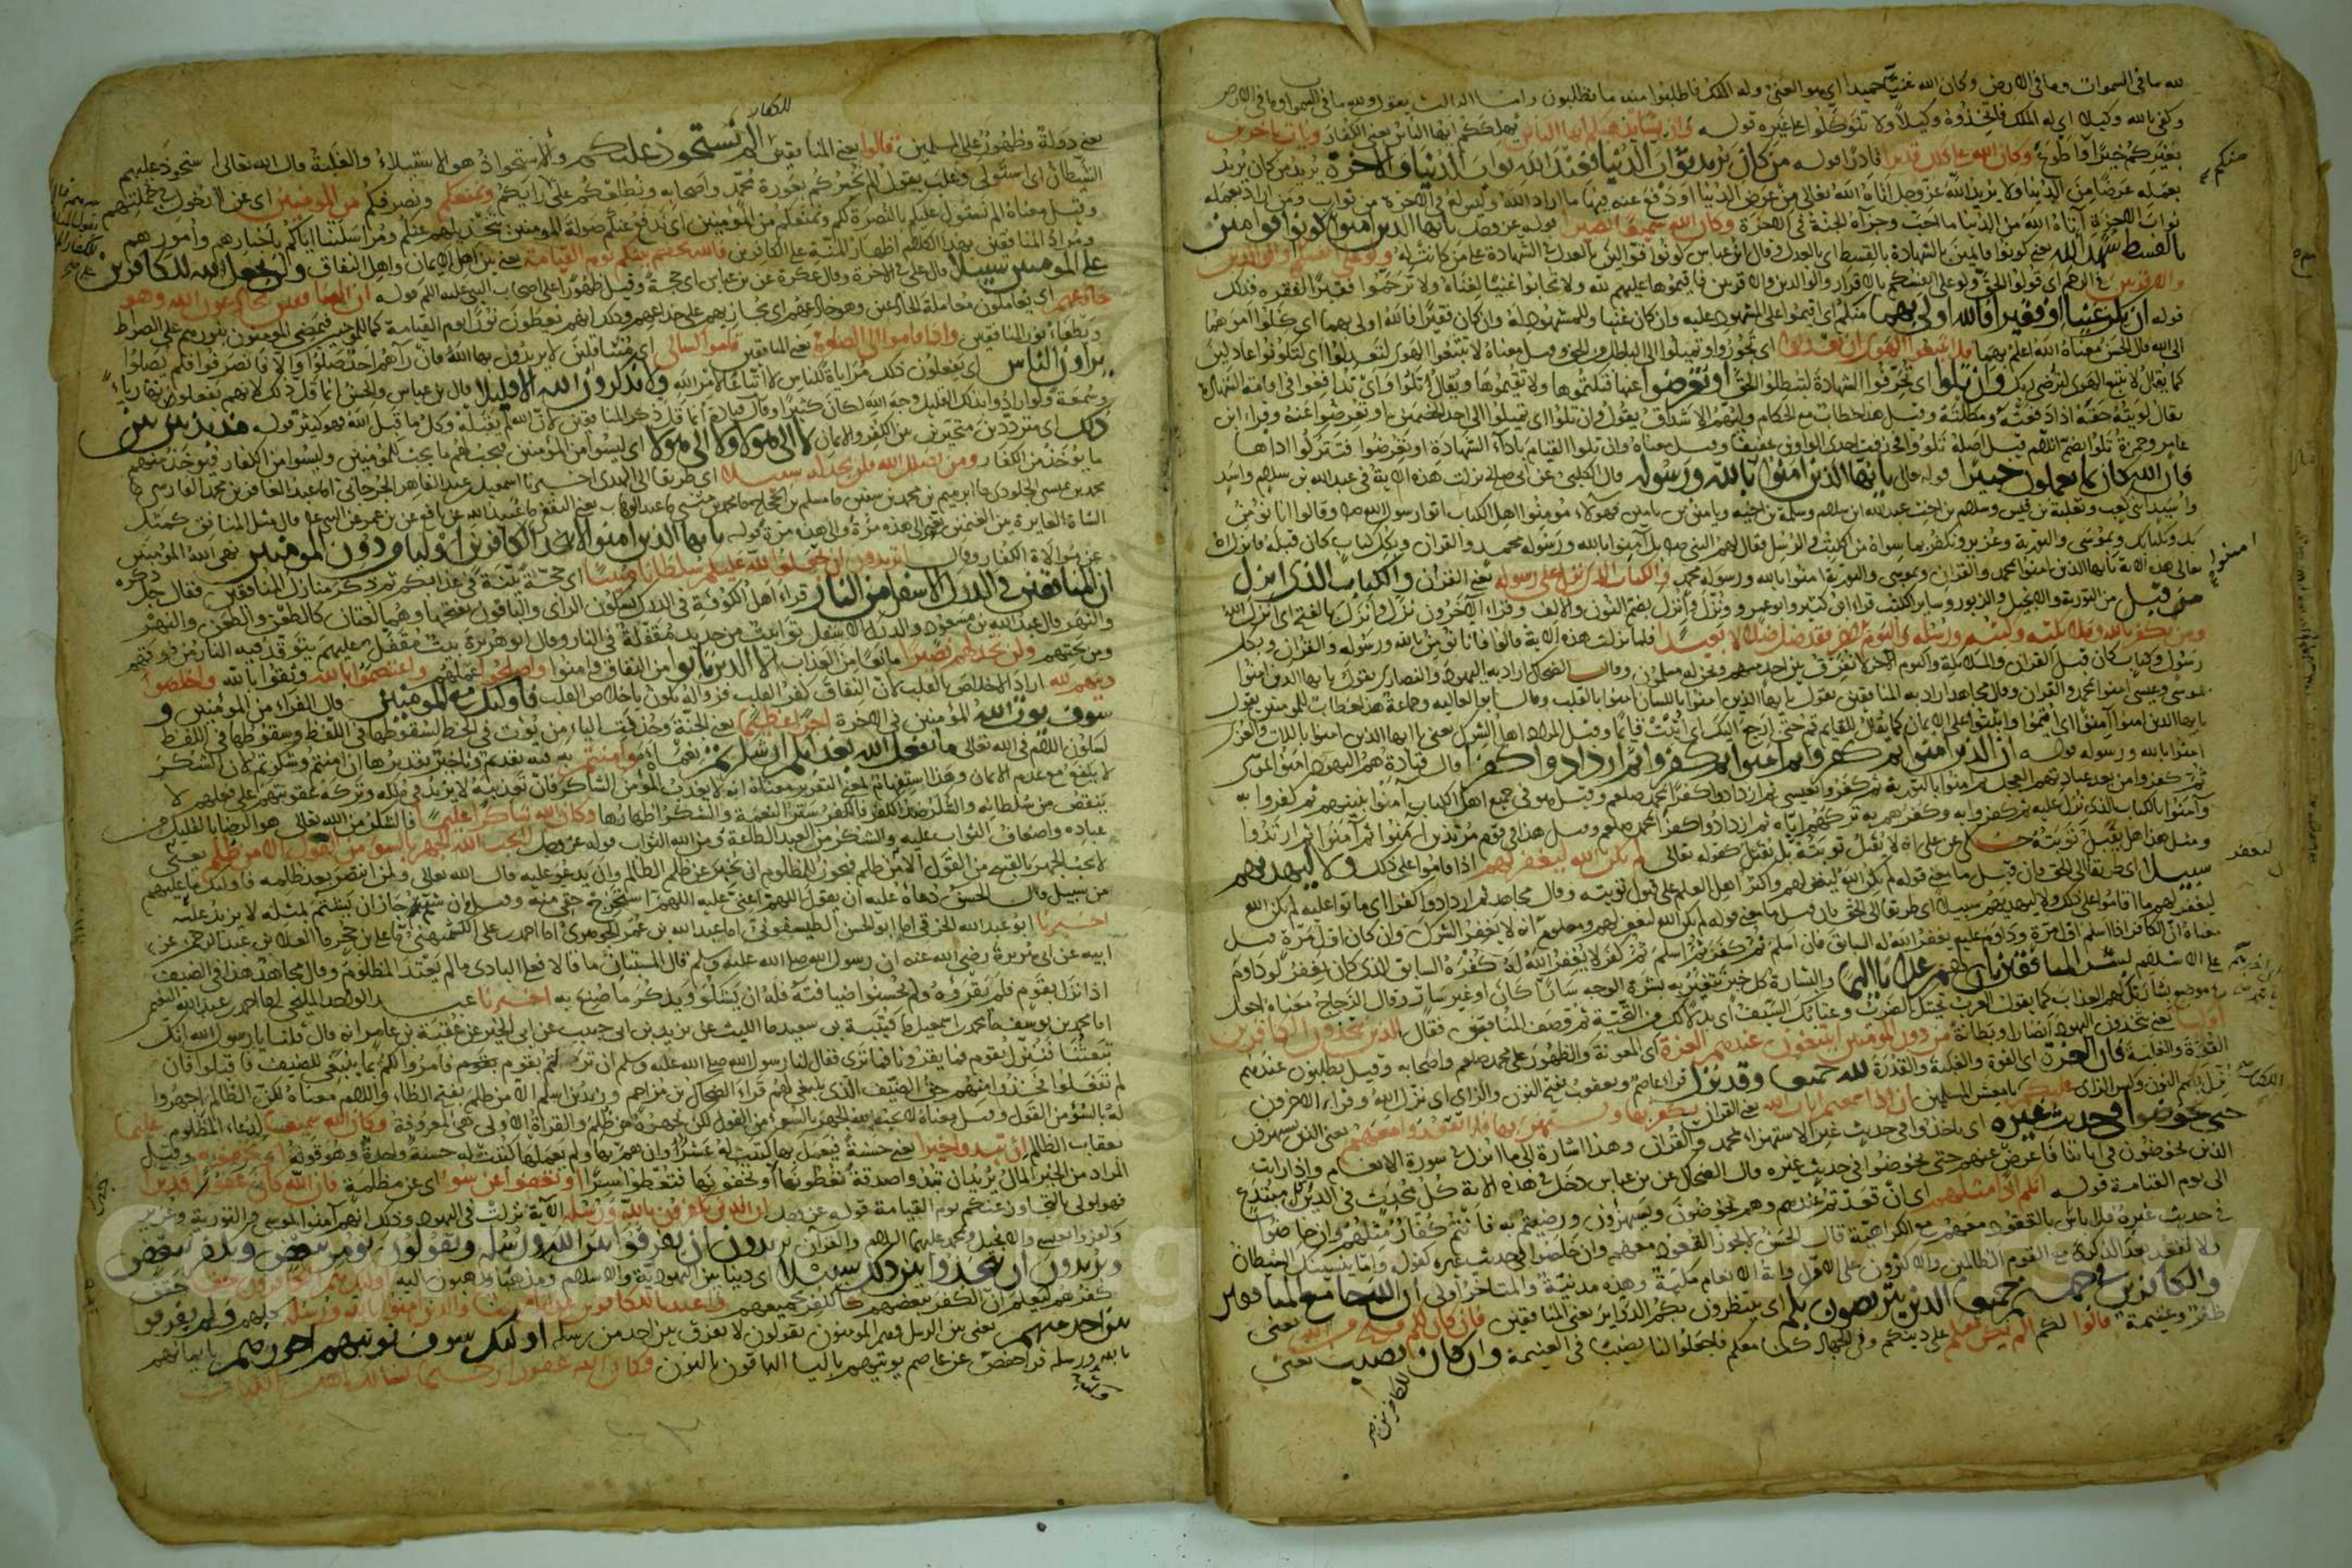 لله ما في السموات وما في الارض وكان الله غنيا حميدا اي هو الغني وله الملك فاطلبوا منه ما تطلبون واما الثالث يقول ولله ما في السموات وما في الارض
وكفى بالله وكيلا اي له الملك فاتخذوه وكيلا ولا تتوكلوا على غيره قوله ان يشا يذهبكم ايها الناس يهلككم ايها الناس يعني الكفار ويات باخرين
بغيركم خيرا منكم واطوع وكان الله على ذلك قديرا قادرا قوله من كان يريد ثواب الدنيا فعند الله ثواب الدنيا والاخرة يريد من كان يريد
بعمله عرضا من الدنيا ولا يريد بالله عز وجل اتاه الله تعالى من عرض الدنيا او دفع عنه فيها ما اراد الله وليس له في الاخرة من ثواب ومن اراد بعمله
ثواب الاخرة اتاه الله من الدنيا ما احب وجزاه الجنة في الاخرة وكان الله سميعا بصيرا قوله عز وجل يا ايها الذين امنوا كونوا قوامين
بالقسط شهداء لله يعني كونوا قائمين بالشهادة بالقسط اي بالعدل وقال ابن عباس كونوا قوالين بالعدل في الشهادة على من كانت له ولو على انفسكم او الوالدين
والاقربين في الرحم اي قولوا الحق ولو على انفسكم بالاقرار والوالدين والاقربين فاقيموها عليهم لله ولا تحابوا غنيا لغناه ولا ترحموا فقيرا لفقره فذلك
قوله ان يكن غنيا او فقيرا فالله اولى بهما منكم اي اقيموا على المشهود عليه وان كان غنيا وللمشهود له وان كان فقيرا فالله اولى بهما اي كلوا امرهما
الى الله قال الحسن معناه الله اعلم بهما فلا تتبعوا الهوى ان تعدلوا اي تجوروا وتميلوا الى الباطل من الحق وقيل معناه لا تتبعوا الهوى لتعدلوا اي لتكونوا عادلين
كما يقال لا تتبع الهوى لترضي ربك وان تلووا اي تحرفوا الشهادة لتبطلوا الحق او تعرضوا عنها فتكتموها ولا تقيموها ويقال تلووا اي تدافعوا في اقامة الشهادة
يقال لويته حقه اذا دفعته ومطلته وقيل هذا خطاب مع الحكام وليهم الاشداق يقول وان تلووا اي تميلوا الى احد الخصمين او تعرضوا عنه وقرا ابن
عامر وحمزة تلوا بضم اللام قيل اصله تلووا فحذفت احدى الواوين تخفيفا وقيل معناه وان تلوا القيام باداء الشهادة او تعرضوا فتتركوا اداءها
فان الله كان بما تعملون خبيرا قوله تعالى يا ايها الذين امنوا امنوا بالله ورسوله قال الكلبي عن ابي صالح نزلت هذه الاية في عبد الله بن سلام واسد
واسيد ابني كعب وثعلبة بن قيس وسلام بن اخت عبد الله بن سلام وسلمة بن اخيه ويامين بن يامين فهؤلاء مؤمنوا اهل الكتاب اتوا رسول الله وقالوا انا نؤمن
بك وبكتابك وبموسى والتورية وعزير ونكفر بما سواه من الكتب والرسل فقال لهم النبي بل امنوا بالله ورسوله محمد والقران وبكل كتاب كان قبله فانزل الله
تعالى هذه الاية يا ايها الذين امنوا بمحمد والقران وبموسى والتورية امنوا بالله ورسوله محمد والكتاب الذي نزل على رسوله يعني القران والكتاب الذي انزل
من قبل من التورية والانجيل والزبور وساير الكتب قرا ابن كثير وابو عمرو وابن عامر نزل وانزل بضم النون والالف وقرا الاخرون نزل وانزل بالفتح اي انزل الله
ومن يكفر بالله وملائكته وكتبه ورسله واليوم الاخر فقد ضل ضلالا بعيدا فلما نزلت هذه الاية قالوا فانا نؤمن بالله ورسوله والقران وبكل
رسول وكتاب كان قبل القران والملائكة واليوم الاخر لا نفرق بين احد منهم ونحن له مسلمون وقال الضحاك اراد به اليهود والنصارى يقول يا ايها الذين امنوا
بموسى وعيسى امنوا بمحمد والقران وقال مجاهد اراد به المنافقين يقول يا ايها الذين امنوا باللسان امنوا بالقلب وقال ابو العالية وجماعة هذا خطاب للمؤمنين يقول
يا ايها الذين امنوا امنوا اي اقيموا واثبتوا على الايمان كما يقال للقائم قم حتى ارجع اليك اي اثبت قائما وقيل المراد اهل الشرك يعني يا ايها الذين امنوا باللات والعزى
امنوا بالله ورسوله قوله ان الذين امنوا ثم كفروا ثم امنوا ثم كفروا ثم ازدادوا كفرا قال قتادة هم اليهود امنوا بموسى
ثم كفروا من بعد عبادتهم العجل ثم امنوا بالتورية ثم كفروا بعيسى ثم ازدادوا كفرا بمحمد صلعم وقيل هو في جميع اهل الكتاب امنوا بنبيهم ثم كفروا به
وامنوا بالكتاب الذي نزل عليه ثم كفروا به وكفرهم به تركهم اياه ثم ازدادوا كفرا بمحمد صلعم وقيل هذا في قوم مرتدين امنوا ثم ارتدوا ثم امنوا ثم ارتدوا
ومثل هذا هل تقبل توبته حكي عن علي انه لا تقبل توبته بل يقتل لقوله تعالى لم يكن الله ليغفر لهم اذا اقاموا على ذلك ولا ليهديهم
سبيلا اي طريقا الى الحق فان قيل ما معنى قوله لم يكن الله ليغفر لهم واكثر اهل العلم على قبول توبته وقال مجاهد ثم ازدادوا كفرا اي ماتوا عليه لم يكن الله
ليغفر لهم ما اقاموا على ذلك ولا ليهديهم سبيلا اي طريقا الى الحق فان قيل ما معنى قوله لم يكن الله ليغفر لهم ومعلوم انه لا يغفر الشرك وان كان اول مرة قيل
معناه ان الكافر اذا اسلم اول مرة ودام عليه يغفر الله له السابق فان اسلم ثم كفر ثم اسلم ثم كفر لا يغفر الله له كفره السابق الذي كان يغفر لو داوم
على الاسلام بشر المنافقين بان لهم عذابا اليما والبشارة كل خبر تتغير به بشرة الوجه سارا كان او غير سار وقال الزجاج معناه اجعل
في موضع بشارتك لهم العذاب كما يقول العرب تحيتك الضرب وعتابك السيف اي بدلا لك من التحية ثم وصف المنافقين فقال الذين يتخذون الكافرين
اولياء يعني يتخذون اليهود انصارا وبطانة من دون المؤمنين ايبتغون عندهم العزة اي المعونة والظهور على محمد صلعم واصحابه وقيل يطلبون عندهم
القوة والغلبة فان العزة اي القوة والغلبة والقدرة لله جميعا وقد نزل قرا عاصم ويعقوب بفتح النون والزاي اي نزل الله وقرا الاخرون
نزل بضم النون وكسر الزاي عليكم يا معشر المسلمين ان اذا سمعتم ايات الله يعني القران يكفر بها ويستهزا بها فلا تقعدوا معهم يعني الذين يستهزؤن
حتى يخوضوا في حديث غيره اي ياخذوا في حديث غير الاستهزاء بمحمد والقران وهذا اشارة الى ما انزل في سورة الانعام واذا رايت
الذين يخوضون في اياتنا فاعرض عنهم حتى يخوضوا في حديث غيره قال الضحاك عن بن عباس دخل في هذه الاية كل محدث في الدين وكل مبتدع
الى يوم القيامة قوله انكم اذا مثلهم اي ان قعدتم عندهم وهم يخوضون ويستهزؤن ورضيتم به فانتم كفار مثلهم وان خاضوا
في حديث غيره فلا باس بالقعود معهم مع الكراهية قال الحسن لا يجوز القعود معهم وان خاضوا في حديث غيره لقوله واما ينسينك الشيطان
فلا تقعد بعد الذكرى مع القوم الظالمين والاكثرون على الاول واية الانعام مكية وهذه مدنية والمتاخر اولى ان الله جامع المنافقين
والكافرين في جهنم جميعا الذين يتربصون بكم اي ينتظرون بكم الدوائر يعني المنافقين فان كان لكم فتح من الله يعني
ظفر وغنيمة قالوا لكم الم نكن معكم على دينكم وفي الجهاد كنا معكم فاجعلوا لنا نصيبا في الغنيمة وان كان نصيب يعني
للكافرين
للكفار
يعني دولة وظهور على المسلمين قالوا يعني المنافقين الم نستحوذ عليكم والاستحواذ هو الاستيلاء والغلبة قال الله تعالى استحوذ عليهم
الشيطان اي استولى وغلب يقول الم نخبركم بعورة محمد واصحابه ونطلعكم على رايكم ونمنعكم ونصرفكم من المؤمنين اي عن الدخول في جملتهم
وقيل معناه الم نستول عليكم بالنصرة لكم ونمنعكم من المؤمنين اي ندفع عنكم صولة المؤمنين بتخذيلهم عنكم ومراسلتنا اياكم باخبارهم وامورهم
ومراد المنافقين بهذا الكلام اظهار المنة على الكافرين فالله يحكم بينكم يوم القيامة يعني بين اهل الايمان واهل النفاق ولن يجعل الله للكافرين
على المؤمنين سبيلا قال علي في الاخرة وقال عكرمة عن بن عباس اي حجة وقيل ظهورا على اصحاب النبي عليه السلم قوله ان المنافقين يخادعون الله وهو
خادعهم اي يعاملون معاملة المخادعين وهو خادعهم اي يجازيهم على خداعهم وذلك انهم يعطون نورا يوم القيامة كما للمؤمنين فيمضي المؤمنون بنورهم على الصراط
ويطفا نور المنافقين واذا قاموا الى الصلوة يعني المنافقين قاموا كسالى اي متثاقلين لا يريدون بها الله فان راهم احد صلوا والا فانصرفوا فلم يصلوا
يراؤن الناس اي يفعلون ذلك مراياة للناس لا اتباعا لامر الله ولا يذكرون الله الا قليلا قال بن عباس والحسن انما قال ذلك لانهم يفعلونها رياء
وسمعة ولو ارادوا بذلك القليل وجه الله لكان كثيرا وقال قتادة انما قل ذكر المنافقين لان الله لم يقبله وكل ما قبل الله فهو كثير قوله مذبذبين بين
ذلك اي مترددين متحيرين بين الكفر والايمان لا الى هؤلاء ولا الى هؤلاء اي ليسوا من المؤمنين فيجب لهم ما يجب للمؤمنين وليسوا من الكفار فيؤخذ منهم
ما يؤخذ من الكفار ومن يضلل الله فلن تجد له سبيلا اي طريقا الى الهدى اخبرنا اسمعيل بن عبد القاهر الجرجاني انا عبد الغافر بن محمد الفارسي انا
محمد بن عيسى الجلودي نا ابرهيم بن محمد بن سفين نا مسلم بن الحجاج نا محمد بن مثنى نا عبد الوهاب يعني الثقفي نا عبيد الله عن نافع عن بن عمر عن النبي قال مثل المنافق كمثل
الشاة العايرة بين الغنمين تعير الى هذه مرة والى هذه مرة قوله يا ايها الذين امنوا لا تتخذوا الكافرين اولياء من دون المؤمنين نهى الله المؤمنين
عن موالاة الكفار وقال اتريدون ان تجعلوا لله عليكم سلطانا مبينا اي حجة بينة في عذابكم ثم ذكر منازل المنافقين فقال جل ذكره
ان المنافقين في الدرك الاسفل من النار قرا اهل الكوفة في الدرك بسكون الراي والباقون بفتحها وهما لغتان كالظعن والظعن والنهر
والنهر قال عبد الله بن مسعود والدرك الاسفل توابيت من حديد مقفلة في النار وقال ابو هريرة بيت مقفل عليهم يتوقد فيه النار من فوقهم
ومن تحتهم ولن تجد لهم نصيرا مانعا من العذاب الا الذين تابوا من النفاق وامنوا واصلحوا عملهم واعتصموا بالله وثقوا بالله واخلصوا
دينهم لله اراد الاخلاص بالقلب لان النفاق كفر القلب فزواله يكون باخلاص القلب فاولئك مع المؤمنين قال الفراء من المؤمنين و
سوف يؤت الله المؤمنين في الاخرة اجرا عظيما يعني الجنة وحذفت الياء من يؤت في الخط لسقوطها في اللفظ وسقوطها في اللفظ
لسكون اللام في الله تعالى ما يفعل الله بعذابكم ان شكرتم نعماه وامنتم به فيه تقديم وتاخير تقديره ان امنتم وشكرتم لان الشكر
لا ينفع مع عدم الايمان وهذا استفهام بمعنى التقرير معناه انه لا يعذب المؤمن الشاكر فان تعذيبه لا يزيد في ملكه وتركه عقوبتهم على فعلهم لا
ينقص من سلطانه والشكر ضد الكفر فالكفر ستر النعمة والشكر اظهارها وكان الله شاكرا عليما فالشكر من الله تعالى هو الرضا بالقليل من
عباده واضعاف الثواب عليه والشكر من العبد الطاعة ومن الله الثواب قوله عز وجل لا يحب الله الجهر بالسوء من القول الا من ظلم يعني
لا يحب الجهر بالقبح من القول الا من ظلم فيجوز للمظلوم ان يخبر عن ظلم الظالم وان يدعو عليه قال الله تعالى ولمن انتصر بعد ظلمه فاولئك ما عليهم
من سبيل قال الحسن دعاؤه عليه ان يقول اللهم اعني عليه اللهم استخرج حقي منه وقيل ان شتم جاز ان يشتم بمثله لا يزيد عليه
اخبرنا ابو عبد الله الخرقي انا ابو الحسن الطيسفوني انا عبد الله بن عمر الجوهري انا احمد بن علي الكشميهني نا علي بن حجر نا العلاء بن عبد الرحمن عن
ابيه عن ابي هريرة رضي الله عنه ان رسول الله صلى الله عليه وسلم قال المستبان ما قالا فعلى البادي ما لم يعتد المظلوم وقال مجاهد هذا في الضيف
اذا نزل بقوم فلم يقروه ولم يحسنوا ضيافته فله ان يشكو ويذكر ما صنع به اخبرنا عبد الواحد المليحي انا احمد بن عبد الله النعيمي
انا محمد بن يوسف نا محمد بن اسمعيل نا قتيبة بن سعيد نا الليث عن يزيد بن ابي حبيب عن ابي الخير عن عقبة بن عامر انه قال قلنا يا رسول الله انك
تبعثنا فننزل بقوم فما يقرونا فما ترى فقال لنا رسول الله صلى الله عليه وسلم ان نزلتم بقوم فامروا لكم بما ينبغي للضيف فاقبلوا فان
لم تفعلوا فخذوا منهم حق الضيف الذي ينبغي لهم قرا الضحاك بن مزاحم وزيد بن اسلم الا من ظلم بفتح الظاء واللام معناه لكن الظالم اجهروا
له بالسوء من القول وقيل معناه لا يحب الله الجهر بالسوء من القول لكن يجهره من ظلم والقراة الاولى هي المعروفة وكان الله سميعا لدعاء المظلوم عليما
بعقاب الظالم ان تبدوا خيرا يعني حسنة فيعمل بها كتبت له عشرا وان هم بها ولم يعملها كتبت له حسنة واحدة وهو قوله او تخفوه وقيل
المراد من الخير المال يريد ان تبدوا صدقة تعطونها او تخفوها فتعطوها سرا او تعفوا عن سوء اي عن مظلمة فان الله كان عفوا قديرا
فهو اولى بالتجاوز عنكم يوم القيامة قوله عز وجل ان الذين يكفرون بالله ورسله الاية نزلت في اليهود وذلك انهم امنوا بموسى والتورية وعزير
وكفروا بعيسى والانجيل وبمحمد عليهما السلام والقران يريدون ان يفرقوا بين الله ورسله ويقولون نؤمن ببعض ونكفر ببعض
ويريدون ان يتخذوا بين ذلك سبيلا اي دينا بين اليهودية والاسلام ومذهبا يذهبون اليه اولئك هم الكافرون حقا حقق
كفرهم ليعلم ان الكفر ببعضهم كالكفر بجميعهم واعتدنا للكافرين عذابا مهينا والذين امنوا بالله ورسله كلهم ولم يفرقوا
بين احد منهم يعني بين الرسل وهم المؤمنون يقولون لا نفرق بين احد من رسله اولئك سوف نؤتيهم اجورهم بايمانهم
بالله ورسله قرا حفص عن عاصم يؤتيهم بالياء الباقون بالنون وكان الله غفورا رحيما